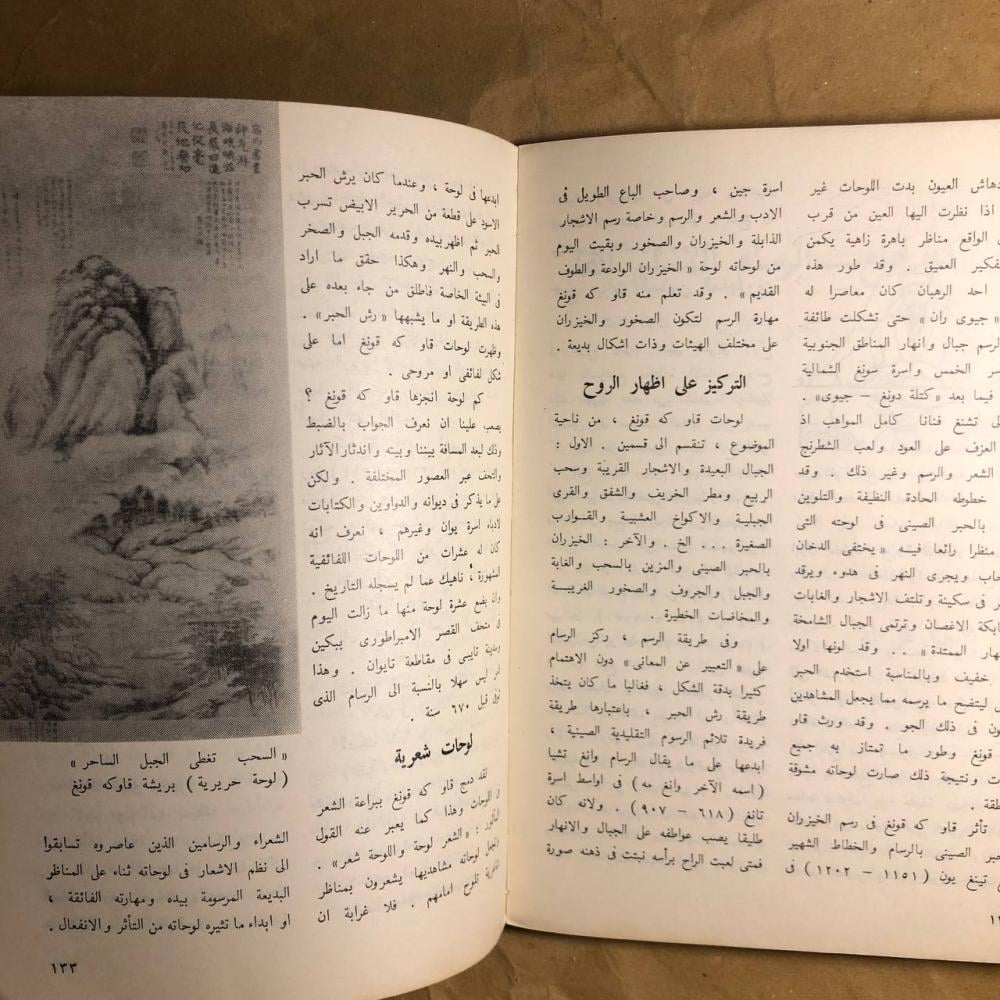 دهاش العيون بدت اللوحات غير
اذا نظرت اليها العين من قرب
الواقع مناظر باهرة زاهية يكمن
فكير العميق . وقد طور هذه
احد الرهبان كان معاصرا له
« جيوى ران » حتى تشكلت طائفة
الرسم جبال وانهار المناطق الجنوبية
سر الخمس واسرة سونغ الشمالية
فيما بعد « كتلة دونغ – جيوى » .
تشنغ فنانا كامل المواهب اذ
العزف على العود ولعب الشطرنج
الشعر والرسم وغير ذلك . وقد
خطوطه الحادة النظيفة والتلوين
بالحبر الصينى فى لوحته التى
منظرا رائعا فيه « يختفى الدخان
حاب ويجرى النهر فى هدوء ويرقد
فى سكينة وتلتف الاشجار والغابات
ابكة الاغصان وترتمى الجبال الشامخة
هار الممتدة » . . وقد لونها اولا
خفيف وبالمناسبة استخدم الحبر
ل ليتضح ما يرسمه مما يجعل المشاهدين
ون فى ذلك الجو . وقد ورث قاو
قونغ وطور ما تمتاز به جميع
ت ونتيجة ذلك صارت لوحاته مشوقة
طقة .
تأثر قاو كه قونغ فى رسم الخيزران
حبر الصينى بالرسام والخطاط الشهير
تينغ يون ( ١١٥١ – ١٢٠٢ ) فى
اسرة جين ، وصاحب الباع الطويل فى
الادب والشعر والرسم وخاصة رسم الاشجار
الذابلة والخيزران والصخور وبقيت اليوم
من لوحاته لوحة « الخيزران الوادعة والطوف
القديم » . وقد تعلم منه قاو كه قونغ
مهارة الرسم لتكون الصخور والخيزران
على مختلف الهيئات وذات اشكال بديعة .
التركيز على اظهار الروح
لوحات قاو كه قونغ ، من ناحية
الموضوع ، تنقسم الى قسمين . الاول :
الجبال البعيدة والاشجار القريبة وسحب
الربيع ومطر الخريف والشفق والقرى
الجبلية والاكواخ العشبية والقوارب
الصغيرة . . . الخ . والآخر : الخيزران
بالحبر الصينى والمزين بالسحب والغابة
والجبل والجروف والصخور الغريبة
والمخاضات الخطيرة .
وفى طريقة الرسم ، ركز الرسام
على « التعبير عن المعانى » دون الاهتمام
كثيرا بدقة الشكل ، فغالبا ما كان يتخذ
طريقة رش الحبر ، باعتبارها طريقة
فريدة تلائم الرسوم التقليدية الصينية ،
ابدعها على ما يقال الرسام وانغ تشيا
( اسمه الآخر وانغ مه ) فى اواسط اسرة
تانغ ( ٦١٨ – ٩٠٧ ) . ولانه كان
طليقا يصب عواطفه على الجبال والانهار
فمتى لعبت الراح برأسه نبتت فى ذهنه صورة
ابدعها فى لوحة ، وعندما كان يرش الحبر
الاسود على قطعة من الحرير الابيض تسرب
الحبر ثم اظهر بيده وقدمه الجبل والصخر
والسحب والنهر وهكذا حقق ما اراد
فى البيئة الخاصة فاطلق من جاء بعده على
هذه الطريقة او ما يشبهها « رش الحبر » .
وظهرت لوحات قاو كه قونغ اما على
شكل لفائفى او مروحى .
كم لوحة انجزها قاو كه قونغ ؟
يصعب علينا ان نعرف الجواب بالضبط
وذلك لبعد المسافة بيننا وبينه واندثار الآثار
والتحف عبر العصور المختلفة . ولكن
على ما يذكر فى ديوانه والدواوين والكتابات
لادباء اسرة يوان وغيرهم ، نعرف انه
كان له عشرات من اللوحات اللفائفية
المشهورة ، ناهيك عما لم يسجله التاريخ .
وان بضع عشرة لوحة منها ما زالت اليوم
فى متحف القصر الامبراطورى ببكين
ومدينة تايبى فى مقاطعة تايوان . وهذا
امر ليس سهلا بالنسبة الى الرسام الذى
توفى قبل ٦٧٠ سنة .
لوحات شعرية
لقد دمج قاو كه قونغ ببراعة الشعر
فى اللوحات وهذا كما يعبر عنه القول
المأثور : « الشعر لوحة واللوحة شعر » .
وتجعل لوحاته مشاهديها يشعرون بمناظر
شاعرية تلوح امامهم . فلا غرابة ان
« السحب تغطى الجبل الساحر »
( لوحة حريرية ) بريشة قاوكه قونغ
الشعراء والرسامين الذين عاصروه تسابقوا
الى نظم الاشعار فى لوحاته ثناء على المناظر
البديعة المرسومة بيده ومهارته الفائقة ،
او ابداء ما تثيره لوحاته من التأثر والانفعال .
١٣٣